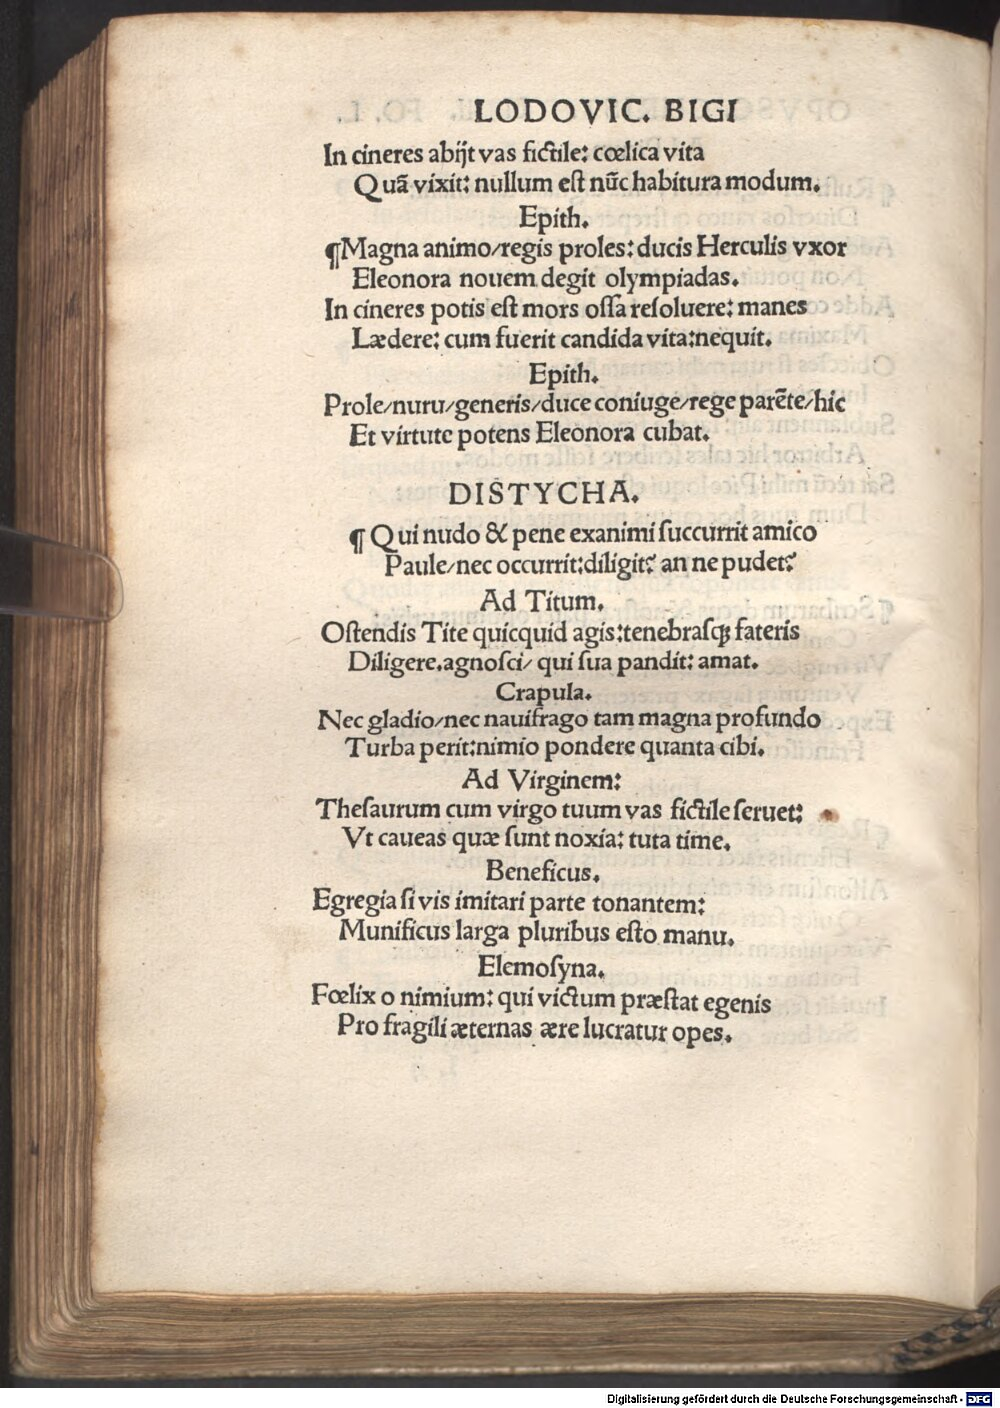 LODOVIC. BIGI
In cineres abijt vas fictile: cœlica vita
Quā vixit: nullum est nūc habitura modum.
Epith.
¶Magna animo/regis proles: ducis Herculis vxor
Eleonora nouem degit olympiadas.
In cineres potis est mors ossa resoluere: manes
Lædere: cum fuerit candida vita:nequit.
Epith.
Prole/nuru/generis/duce coniuge/rege parēte/hic
Et virtute potens Eleonora cubat.
DISTYCHA.
¶ Qui nudo & pene exanimi succurrit amico
Paule/nec occurrit:diligit? an ne pudet?
Ad Titum.
Ostendis Tite quicquid agis:tenebrasꝗ fateris
Diligere.agnosci/ qui sua pandit: amat.
Crapula.
Nec gladio/nec nauifrago tam magna profundo
Turba perit:nimio pondere quanta cibi.
Ad Virginem:
Thesaurum cum virgo tuum vas fictile seruet:
Vt caueas quæ sunt noxia: tuta time.
Beneficus.
Egregia si vis imitari parte tonantem:
Munificus larga pluribus esto manu.
Elemosyna.
Fœlix o nimium: qui victum præstat egenis
Pro fragili æternas ære lucratur opes.
Digitalisierung gefördert durch die Deutsche Forschungsgemeinschaft - DFG